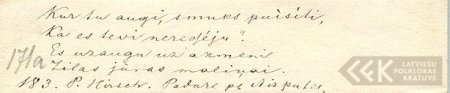 Kur tu augi, smuks puisīti,
Ka es tevi neredzēju?
171a
Es uzaugu uz akmeni
Zilas jūras maliņai.
183. P. Hirsch. Padure pē Aizputes.
LFK
LATVIEŠU
FOLKLORAS
KRĀTUVE